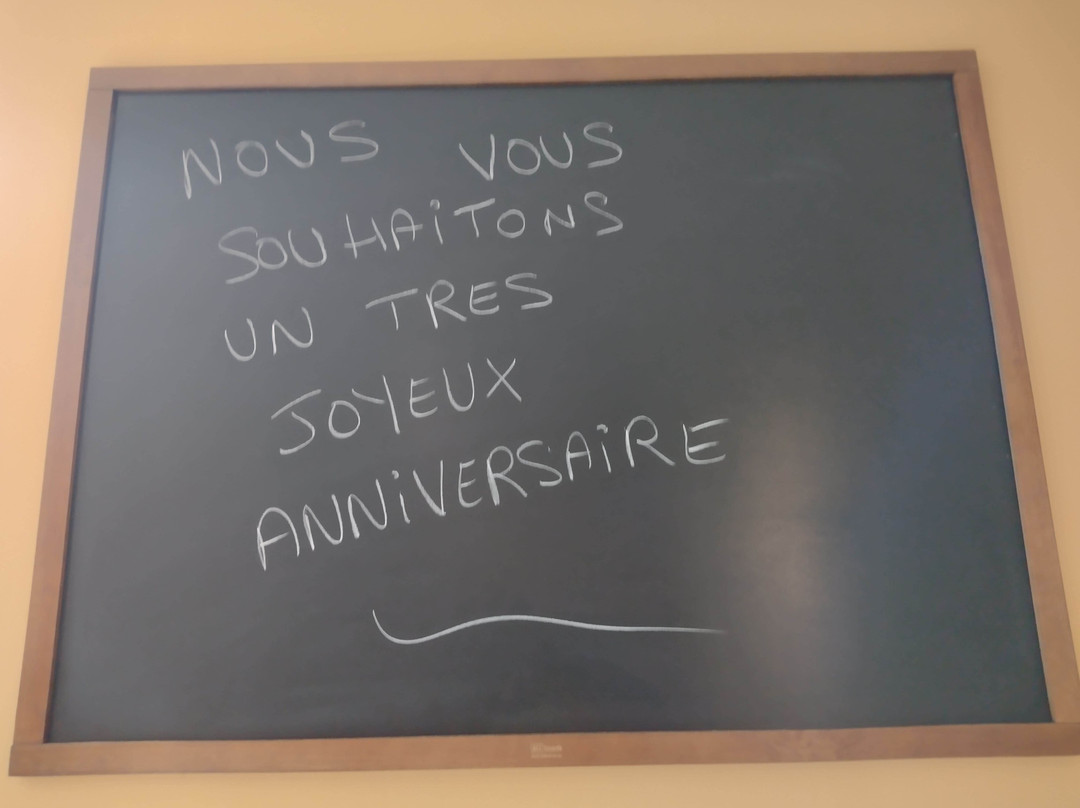 NOUS VOUS
SOUHAiTONS
UN TRES
JOYEUX
ANNiVERSAiRE